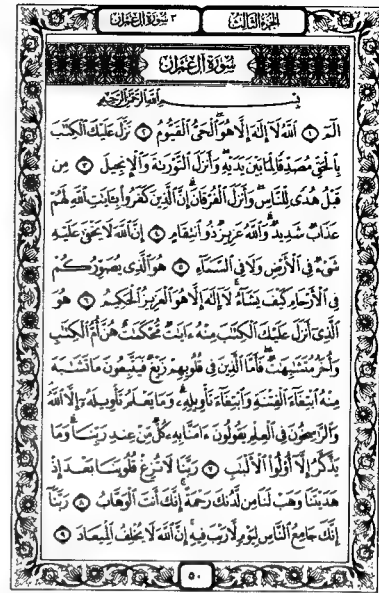 الجزء الثالث ٣ سورة آل عمران
سورة آل عمران
بسم الله الرحمن الرحيم
الٓمٓ ١ ٱللَّهُ لَآ إِلَٰهَ إِلَّا هُوَ ٱلْحَىُّ ٱلْقَيُّومُ ٢ نَزَّلَ عَلَيْكَ ٱلْكِتَٰبَ
بِٱلْحَقِّ مُصَدِّقًا لِّمَا بَيْنَ يَدَيْهِ وَأَنزَلَ ٱلتَّوْرَىٰةَ وَٱلْإِنجِيلَ ٣ مِن
قَبْلُ هُدًى لِّلنَّاسِ وَأَنزَلَ ٱلْفُرْقَانَ إِنَّ ٱلَّذِينَ كَفَرُوا۟ بِـَٔايَٰتِ ٱللَّهِ لَهُمْ
عَذَابٌ شَدِيدٌ وَٱللَّهُ عَزِيزٌ ذُو ٱنتِقَامٍ ٤ إِنَّ ٱللَّهَ لَا يَخْفَىٰ عَلَيْهِ
شَىْءٌ فِى ٱلْأَرْضِ وَلَا فِى ٱلسَّمَآءِ ٥ هُوَ ٱلَّذِى يُصَوِّرُكُمْ
فِى ٱلْأَرْحَامِ كَيْفَ يَشَآءُ لَآ إِلَٰهَ إِلَّا هُوَ ٱلْعَزِيزُ ٱلْحَكِيمُ ٦ هُوَ
ٱلَّذِىٓ أَنزَلَ عَلَيْكَ ٱلْكِتَٰبَ مِنْهُ ءَايَٰتٌ مُّحْكَمَٰتٌ هُنَّ أُمُّ ٱلْكِتَٰبِ
وَأُخَرُ مُتَشَٰبِهَٰتٌ فَأَمَّا ٱلَّذِينَ فِى قُلُوبِهِمْ زَيْغٌ فَيَتَّبِعُونَ مَا تَشَٰبَهَ
مِنْهُ ٱبْتِغَآءَ ٱلْفِتْنَةِ وَٱبْتِغَآءَ تَأْوِيلِهِۦ وَمَا يَعْلَمُ تَأْوِيلَهُۥٓ إِلَّا ٱللَّهُ
وَٱلرَّٰسِخُونَ فِى ٱلْعِلْمِ يَقُولُونَ ءَامَنَّا بِهِۦ كُلٌّ مِّنْ عِندِ رَبِّنَا وَمَا
يَذَّكَّرُ إِلَّآ أُو۟لُوا۟ ٱلْأَلْبَٰبِ ٧ رَبَّنَا لَا تُزِغْ قُلُوبَنَا بَعْدَ إِذْ
هَدَيْتَنَا وَهَبْ لَنَا مِن لَّدُنكَ رَحْمَةً إِنَّكَ أَنتَ ٱلْوَهَّابُ ٨ رَبَّنَآ
إِنَّكَ جَامِعُ ٱلنَّاسِ لِيَوْمٍ لَّا رَيْبَ فِيهِ إِنَّ ٱللَّهَ لَا يُخْلِفُ ٱلْمِيعَادَ ٩
٥٠